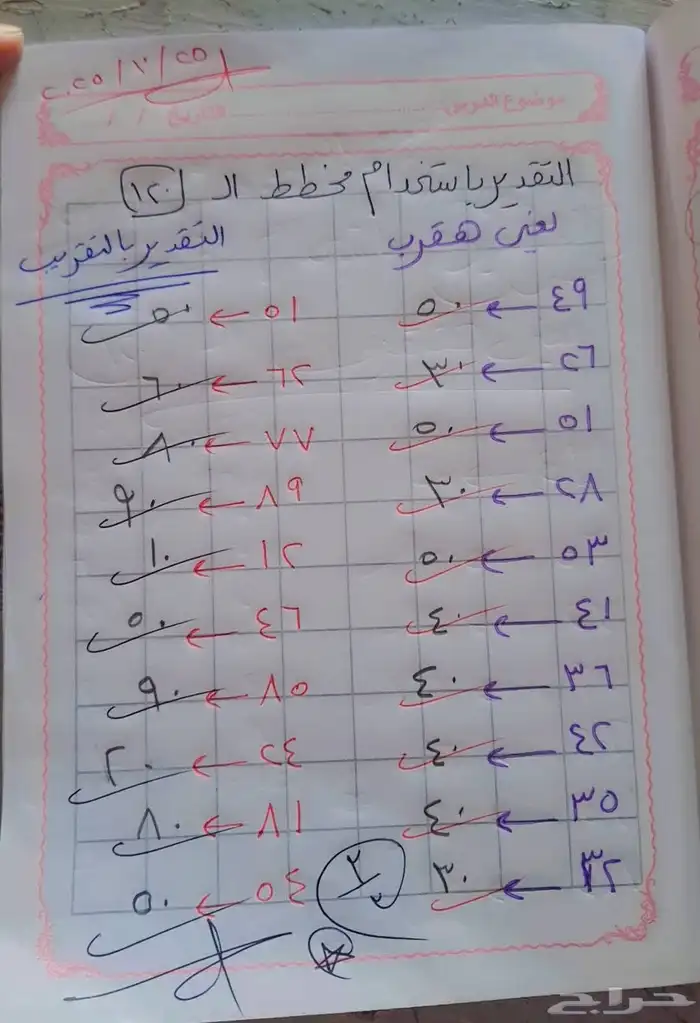 ٢٠٢٥/٧/٢٥
موضوع الدرس التاريخ / /
التقدير باستخدام مخطط الـ ١٢٠
يعني هقرب التقدير بالتقريب
٤٩ ← ٥٠ ٥١ ← ٥٠
٢٦ ← ٣٠ ٦٢ ← ٦٠
٥١ ← ٥٠ ٧٧ ← ٨٠
٢٨ ← ٣٠ ٨٩ ← ٩٠
٥٣ ← ٥٠ ١٢ ← ١٠
٤١ ← ٤٠ ٤٦ ← ٥٠
٣٦ ← ٤٠ ٨٥ ← ٩٠
٤٢ ← ٤٠ ٢٤ ← ٢٠
٣٥ ← ٤٠ ٨١ ← ٨٠
٣٢ ← ٣٠ ٥٤ ← ٥٠
حراج